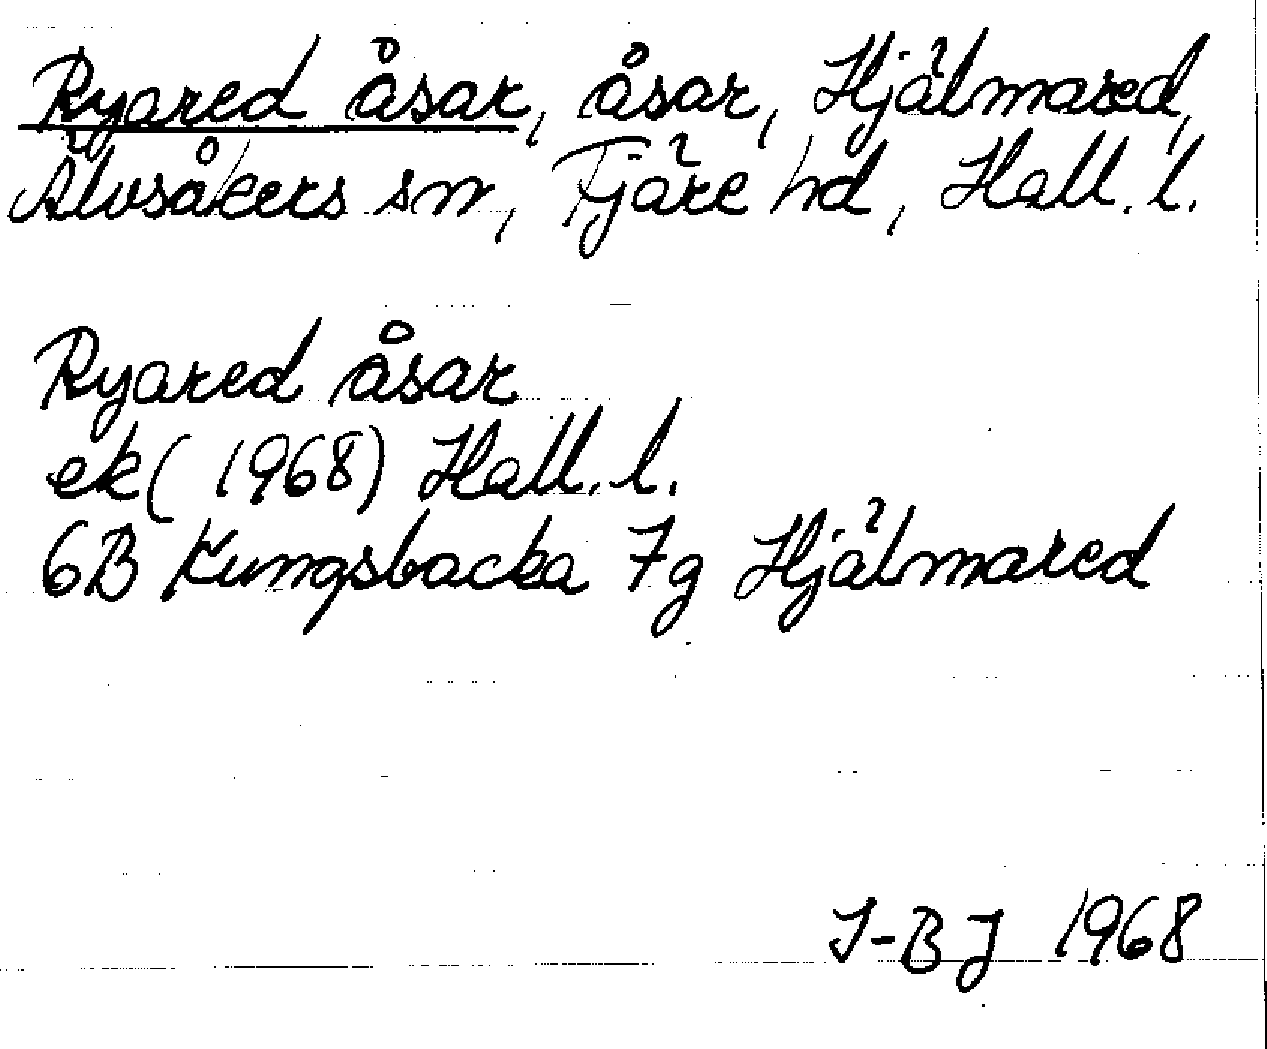 Ryared åsar, åsar, Hjälmared,
Älvsåkers sn, Fjäre hd, Hall. l.
Ryared åsar
ek (1968) Hall. l.
6B Kungsbacka 7g Hjälmared
I-BJ 1968